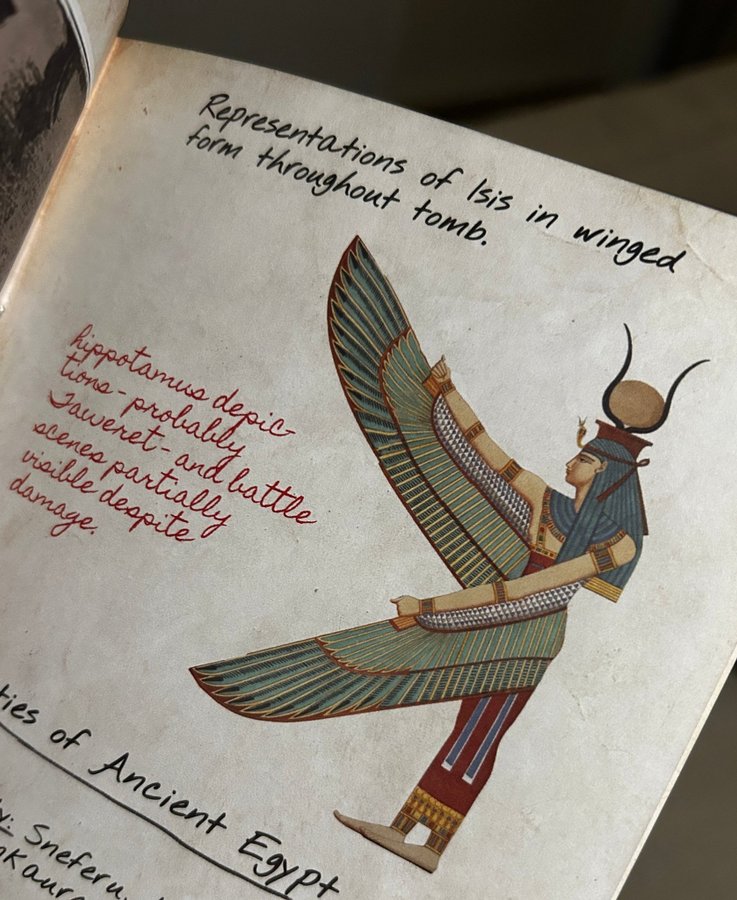 Representations of Isis in winged
form throughout tomb.
hippotamus depic-
tions - probably
Taweret - and battle
scenes partially
visible despite
damage.
ties of Ancient Egypt
Sneferu,